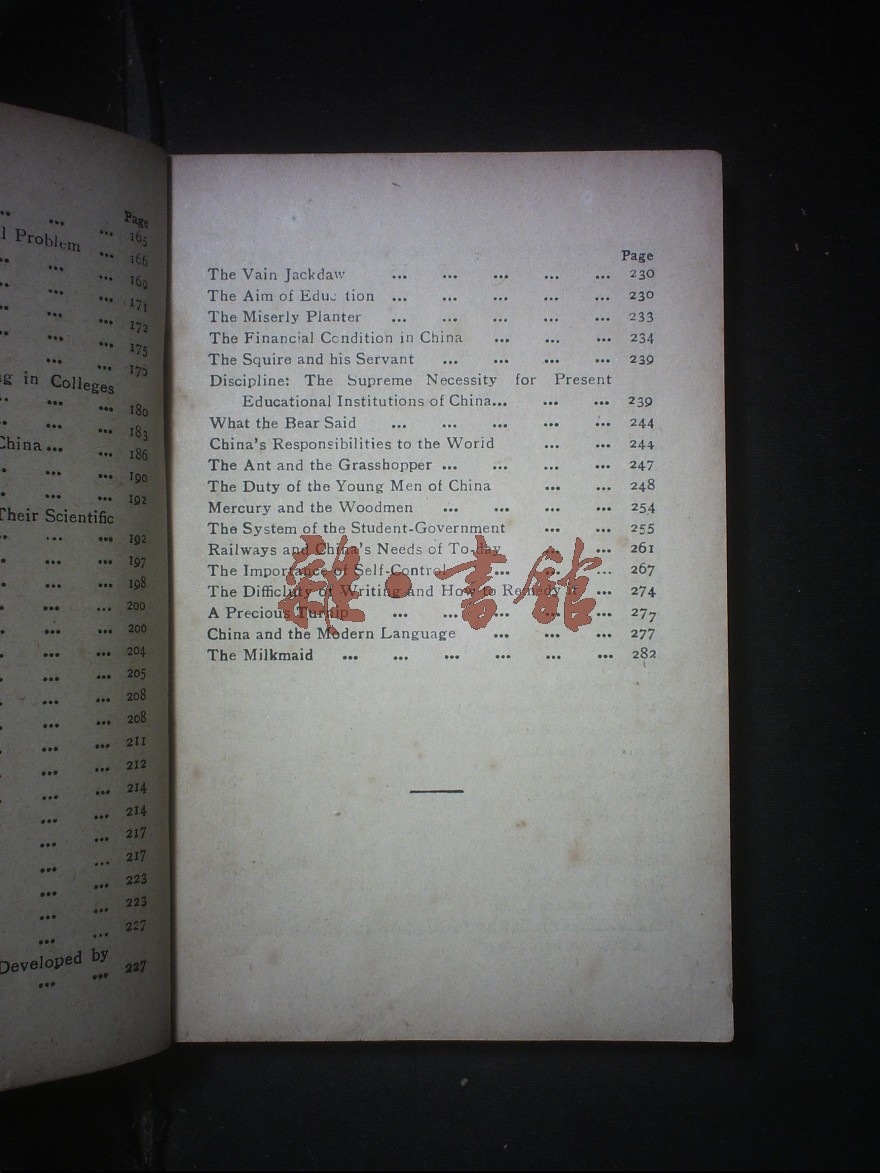 Page
165
l Problem
166
169
171
172
175
176
g in Colleges
180
183
China ... 186
190
192
Their Scientific
192
197
198
200
200
204
205
208
208
211
212
214
214
217
217
223
223
227
Developed by
227
Page
The Vain Jackdaw ... ... ... ... ... 230
The Aim of Educ tion ... ... ... ... ... 230
The Miserly Planter ... ... ... ... ... 233
The Financial Condition in China ... ... ... 234
The Squire and his Servant ... ... ... ... 239
Discipline: The Supreme Necessity for Present
Educational Institutions of China... ... ... 239
What the Bear Said ... ... ... ... ... 244
China's Responsibilities to the World ... ... 244
The Ant and the Grasshopper ... ... ... ... 247
The Duty of the Young Men of China ... ... 248
Mercury and the Woodmen ... ... ... ... 254
The System of the Student-Government ... ... 255
Railways and China's Needs of To-day ... ... 261
The Importance of Self-Control ... ... ... 267
The Difficluty of Writing and How to Remedy It ... 274
A Precious Turnip ... ... ... ... ... 277
China and the Modern Language ... ... ... 277
The Milkmaid ... ... ... ... ... ... 282
雜·書館